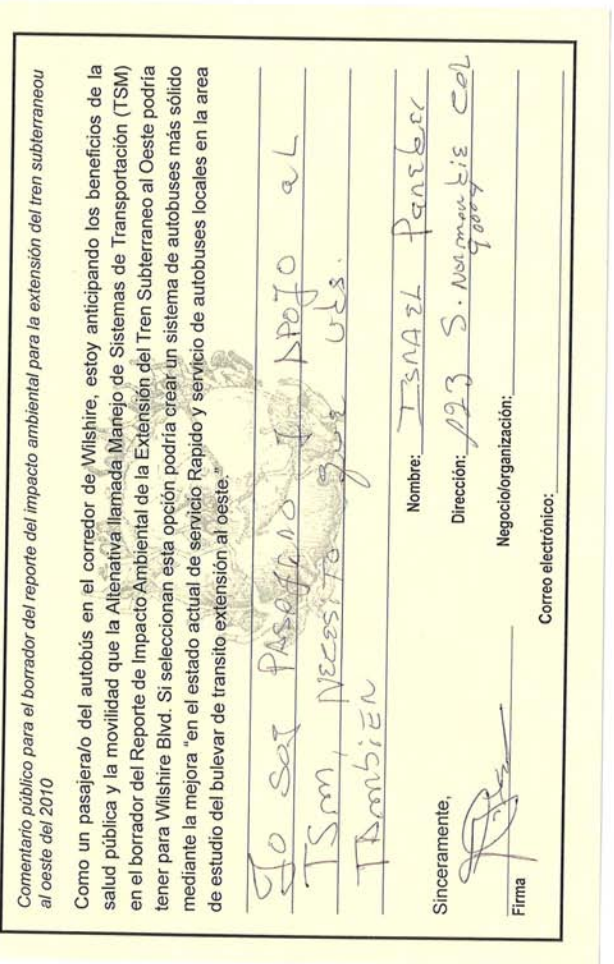 Comentario público para el borrador del reporte del impacto ambiental para la extensión del tren subterraneou
al oeste del 2010
Como un pasajera/o del autobús en el corredor de Wilshire, estoy anticipando los beneficios de la
salud pública y la movilidad que la Altenativa llamada Manejo de Sistemas de Transportación (TSM)
en el borrador del Reporte de Impacto Ambiental de la Extensión del Tren Subterraneo al Oeste podría
tener para Wilshire Blvd. Si seleccionan esta opción podría crear un sistema de autobuses más sólido
mediante la mejora “en el estado actual de servicio Rapido y servicio de autobuses locales en la area
de estudio del bulevar de transito extensión al oeste.”
Jo SoY PASAJERO Y APOJO aL
TSm, NECESITO que Uds.
TAmbiEN
Sinceramente,
Firma
Nombre: ISRAEL
Dirección: 123 S. Normandie
90004
Negocio/organización:
Correo electrónico: